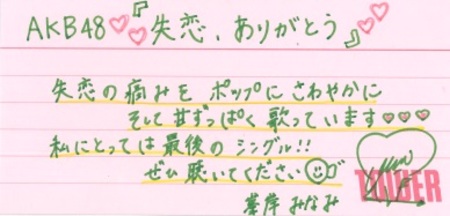 AKB48『失恋、ありがとう』
失恋の痛みをポップにさわやかに
そして甘ずっぱく歌っています
私にとっては最後のシングル!!
ぜひ聴いてください
峯岸みなみ
TOWER